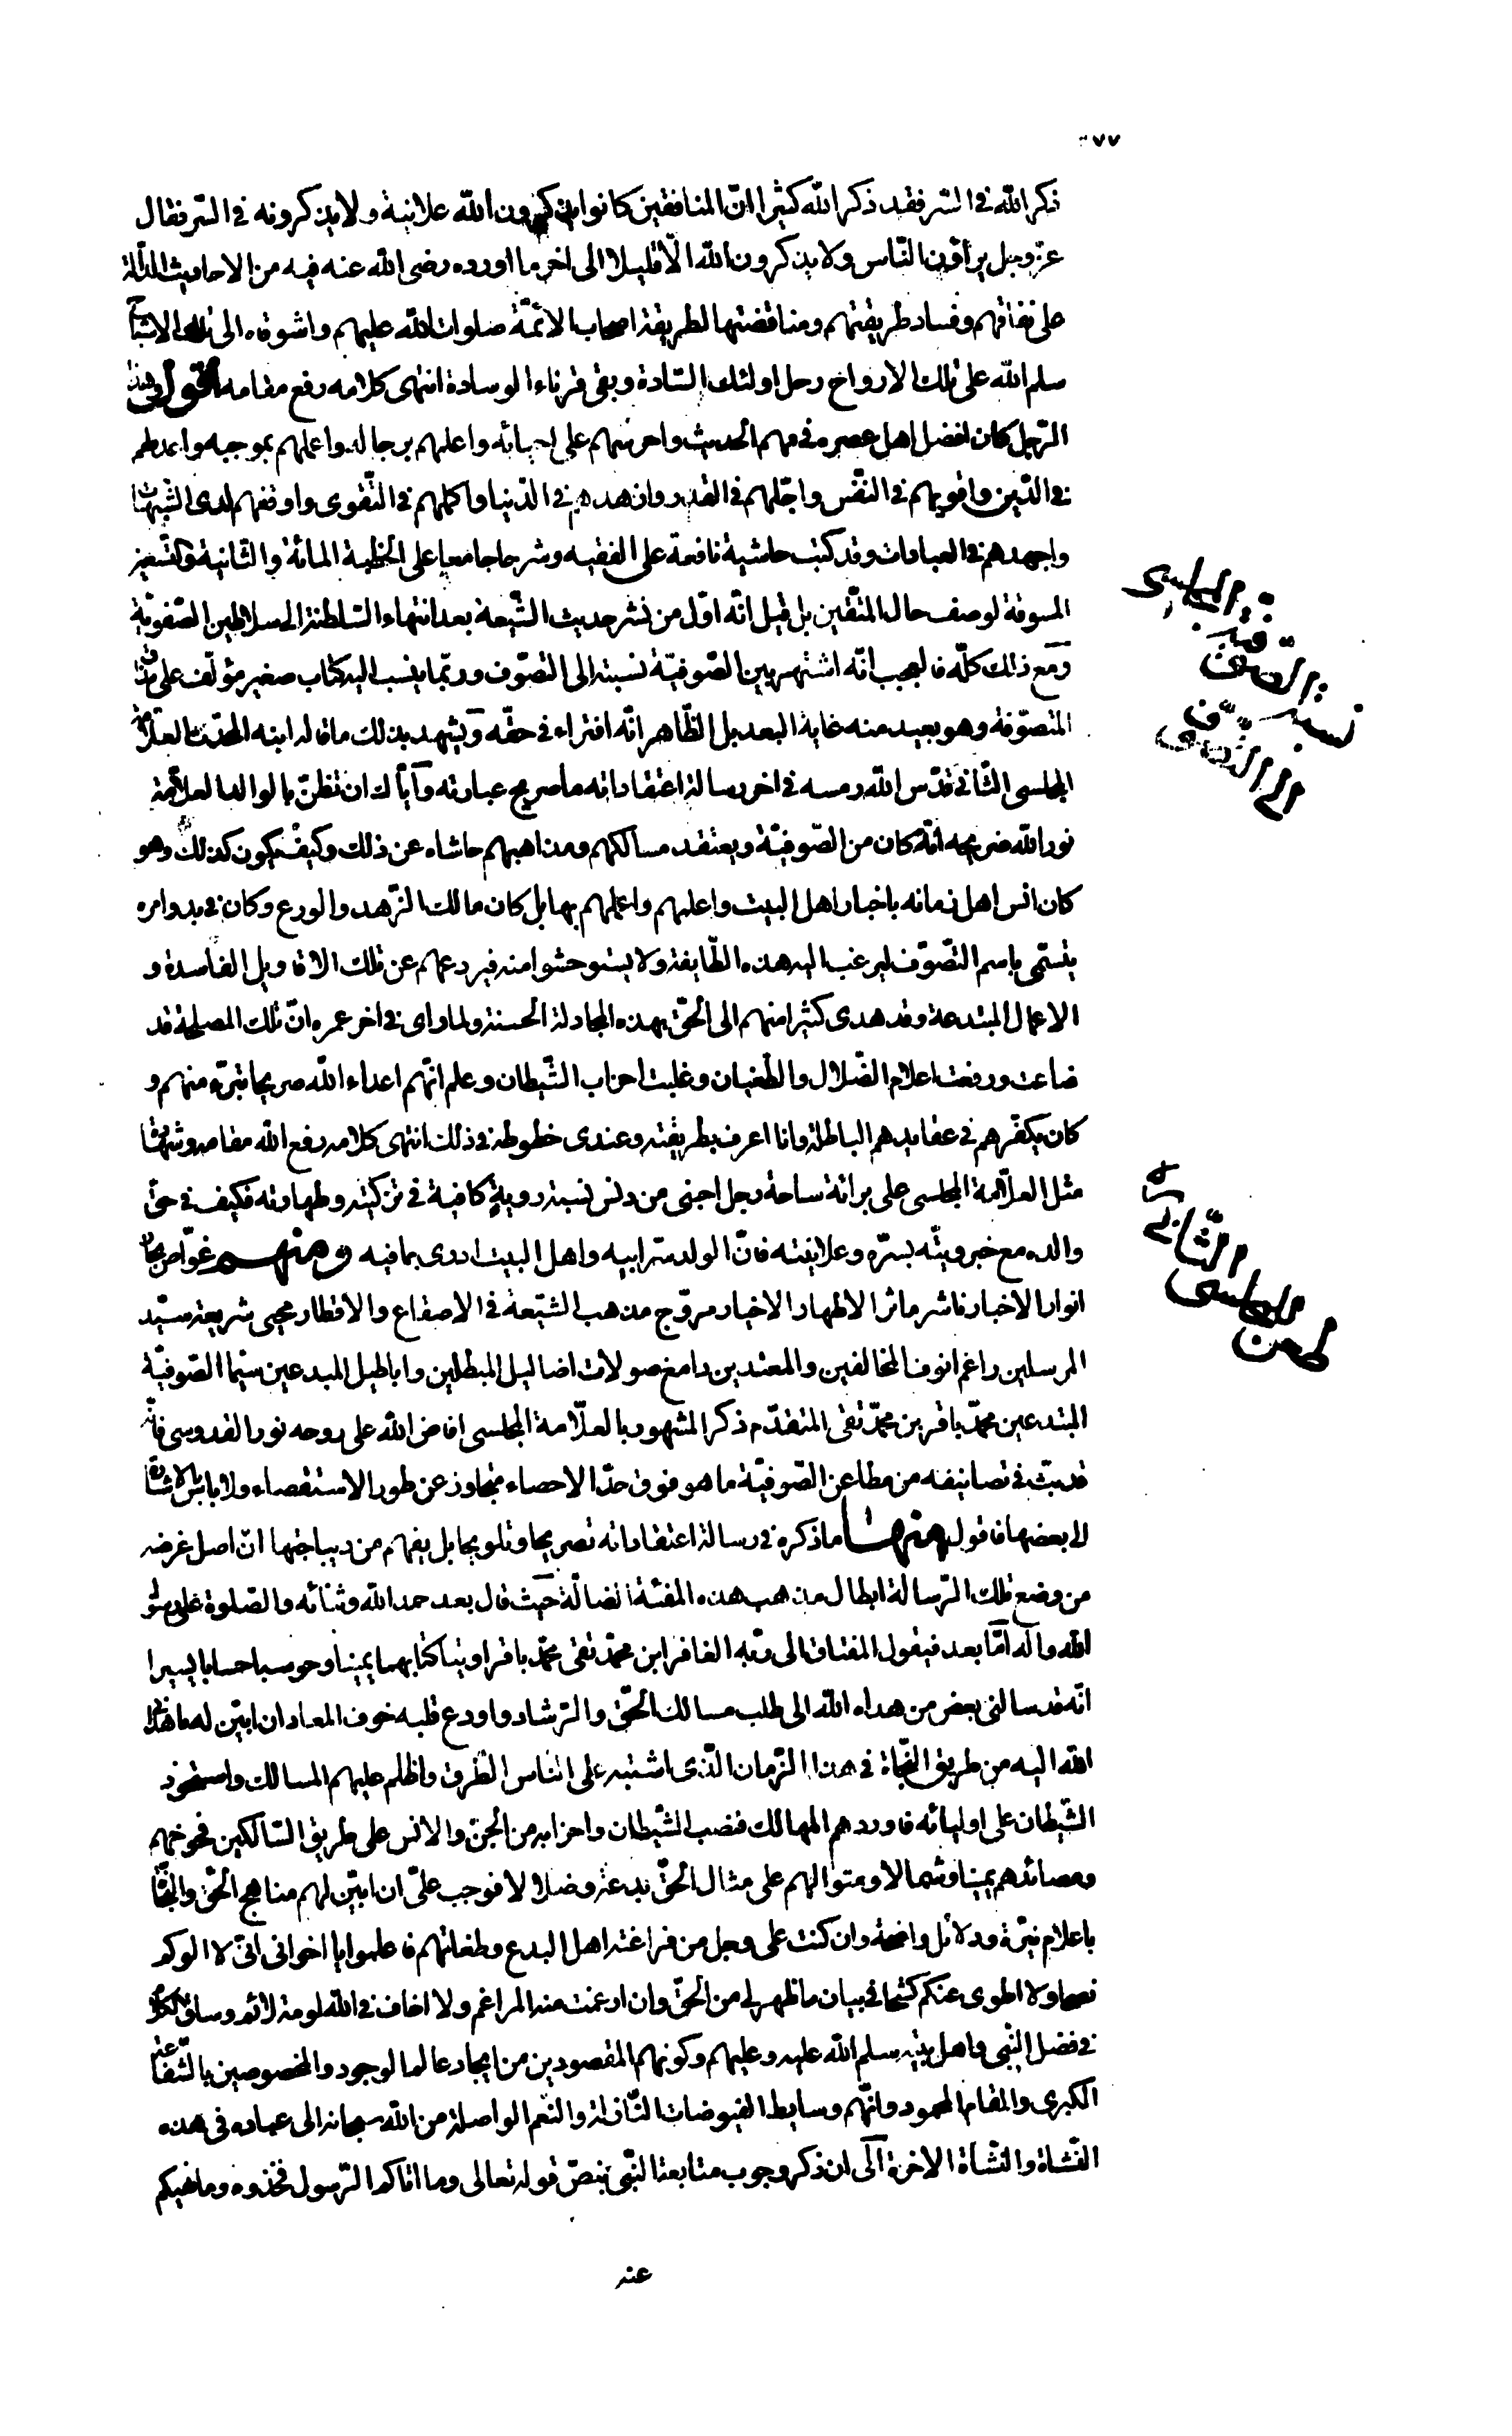 ٧٧
ذكر الله في السر فقد ذكر الله كثيرا ان المنافقين كانوا يذكرون الله علانية ولا يذكرونه في السر فقال
عز وجل يراؤن الناس ولا يذكرون الله الا قليلا الى اخر ما اورده رضى الله عنه فيه من الاحاديث الدالة
على نفاقهم وفساد طريقتهم ومناقضتها لطريقة اصحاب الائمة صلوات الله عليهم واشوقاه الى تلك الاشباح
سلم الله على تلك الارواح رحل اولئك السادة وبقى قرناء الوسادة انتهى كلامه رفع مقامه اقول وهذا
الرجل كان افضل اهل عصره في فهم الحديث واحرصهم على احيائه واعلمهم برجاله واعملهم بموجبه واعدلهم
في الدين واقويهم في النفس واجلهم في القدر وازهدهم في الدنيا واكملهم في التقوى واوقفهم لدى الشبهات
واجهدهم في العبادات وقد كتب حاشية نافعة على الفقيه وشرحا جامعا على الخطبة المائة والثانية وتسعين
المسوقة لوصف حال المتقين بل قيل انه اول من نشر حديث الشيعة بعد انتهاء السلطنة الى سلاطين الصفوية
ومع ذلك كله فالعجب انه اشتهر بين الصوفية نسبته الى التصوف وربما ينسب اليه كتاب صغير مؤلف على مذاق
المتصوفة وهو بعيد منه غاية البعد بل الظاهر انه افتراء في حقه ويشهد بذلك ما قاله ابنه المحدث العلامة
المجلسى الثاني قدس الله رمسه في اخر رسالة اعتقاداته ما صريح عبارته واياك ان تظن بالوالد العلامة
نور الله ضريحه انه كان من الصوفية ويعتقد مسالكهم ومذاهبهم حاشاه عن ذلك وكيف يكون كذلك وهو
كان انس اهل زمانه باخبار اهل البيت واعلمهم واعملهم بها بل كان مالك الزهد والورع وكان في بدو امره
يتسمى باسم التصوف ليرغب اليه هذه الطايفة ولا يستوحشوا منه فيردعهم عن تلك الاقاويل الفاسدة و
الاعمال المبتدعة وقد هدى كثيرا منهم الى الحق بهذه المجادلة الحسنة ولما راى في اخر عمره ان تلك المصلحة قد
ضاعت ورفعت اعلام الضلال والطغيان وغلبت احزاب الشيطان وعلم انهم اعداء الله صريحا تبرء منهم و
كان يكفرهم في عقايدهم الباطلة وانا اعرف بطريقته وعندى خطوطه في ذلك انتهى كلامه رفع الله مقامه وشهادة
مثل العلامة المجلسى على برائة ساحة رجل اجنبى من دنس نسبة ردية كافية في تزكيته وطهارته فكيف في حق
والده مع خبرويته بسره وعلانيته فان الولد سر ابيه واهل البيت ادرى بما فيه ومنهم غواص بحار
انوار الاخبار ناشر ماثر الاطهار الاخيار مروج مذهب الشيعة في الاصقاع والاقطار محيى شريعة سيد
المرسلين راغم انوف المخالفين والمعتدين دامغ صولات اضاليل المبطلين واباطيل المبدعين سيما الصوفية
المبتدعين محمد باقر بن محمد تقى المتقدم ذكر المشهور بالعلامة المجلسى افاض الله على روحه نور القدوسى فانه
قد بث في تصانيفه من مطاعن الصوفية ما هو فوق حد الاحصاء متجاوز عن طور الاستقصاء ولا باس بالاشارة
الى بعضها فاقول منها ما ذكره في رسالة اعتقاداته تصريحا وتلويحا بل يفهم من ديباجتها ان اصل غرضه
من وضع تلك الرسالة ابطال مذهب هذه الفئة الضالة حيث قال بعد حمد الله وثنائه والصلوة على رسول
الله واله اما بعد فيقول المفتاق الى ربه الغافر ابن محمد تقى محمد باقر اوتيا كتابهما يمينا وحوسبا حسابا يسيرا
انه قد سالنى بعض من هداه الله الى طلب مسالك الحق والرشاد واودع قلبه خوف المعاد ان ابين له ما هدانى
الله اليه من طريق النجاة في هذا الزمان الذى اشتبه على الناس الطرق واظلم عليهم المسالك واستحوذ
الشيطان على اوليائه فاوردهم المهالك فنصب الشيطان واحزابه من الجن والانس على طريق السالكين فخوخهم
ومصائدهم يمينا وشمالا وسولوا لهم على مثال الحق بدعة وضلالا فوجب على ان ابين لهم مناهج الحق والنجاة
باعلام نيرة ودلائل واضحة وان كنت على وجل من فراعنة اهل البدع وطغاتهم فاعلموا يا اخوانى انى لا الوكم
نصحا ولا اطوى عنكم كشحا في بيان ما ظهر لى من الحق وان ارغمت منه المراغم ولا اخاف في الله لومة لائم وساق الكلام
في فضل النبى واهل بيته سلم الله عليه وعليهم وكونهم المقصودين من ايجاد عالم الوجود والمخصوصين بالشفاعة
الكبرى والمقام المحمود وانهم وسايط الفيوضات النازلة والنعم الواصلة من الله سبحانه الى عباده في هذه
النشاة والنشاة الاخرة الى ان ذكر وجوب متابعة النبى بنص قوله تعالى وما اتاكم الرسول فخذوه وما نهيكم
عنه
نسبة التصوف
الى التقى
المجلسى
طعن
المجلسى
الثانى ره